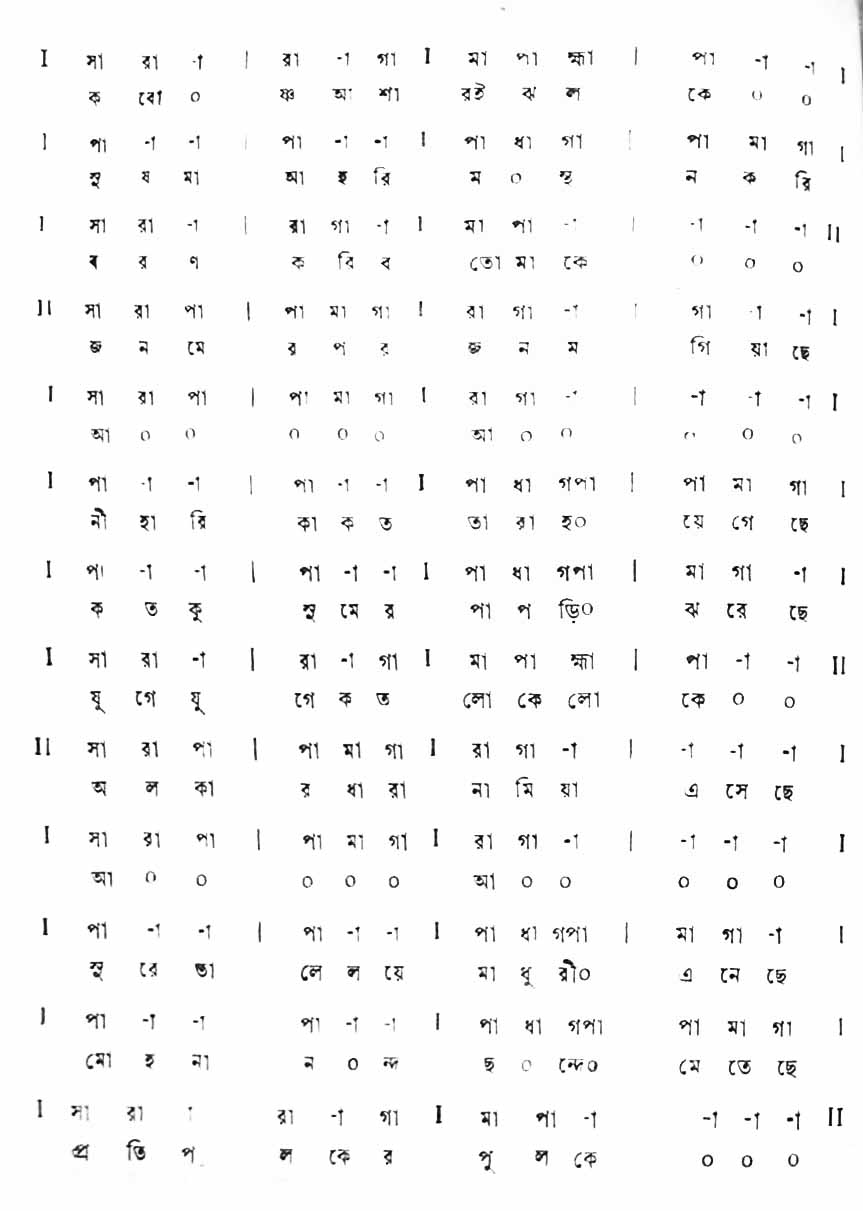 I সা রা -া | রা -া গা I মা পা হ্মা | পা -া -া I
ক রো ০ ষ্ণ আ শা রই ঝ ল কে ০ ০
I পা -া -া | পা -া -া I পা ধা গা | পা মা গা I
সু ষ মা আ হ রি ম ০ ন্থ ন ক রি
I সা রা -া | রা গা -া I মা পা -া | -া -া -া II
ব র ণ ক রি ব তো মা কে ০ ০ ০
II সা রা পা | পা মা গা I রা গা -া | গা -া -া I
জ ন মে র প র জ ন ম গি য়া ছে
I সা রা পা | পা মা গা I রা গা -া | -া -া -া I
আ ০ ০ ০ ০ ০ আ ০ ০ ০ ০ ০
I পা -া -া | পা -া -া I পা ধা গপা | পা মা গা I
নী হা রি কা ক ত তা রা হ০ য়ে গে ছে
I পা -া -া | পা -া -া I পা ধা গপা | মা গা -া I
ক ত কু সু মে র পা প ড়ি০ ঝ রে ছে
I সা রা -া | রা -া গা I মা পা হ্মা | পা -া -া II
যু গে যু গে ক ত লো কে লো কে ০ ০
II সা রা পা | পা মা গা I রা গা -া | -া -া -া I
অ ল কা র ধা রা না মি য়া এ সে ছে
I সা রা পা | পা মা গা I রা গা -া | -া -া -া I
আ ০ ০ ০ ০ ০ আ ০ ০ ০ ০ ০
I পা -া -া | পা -া -া I পা ধা গপা | মা গা -া I
সু রে তা লে ল য়ে মা ধু রী০ এ নে ছে
I পা -া -া পা -া -া I পা ধা গপা পা মা গা I
মো হ না ন ০ ন্দ ছ ০ ন্দে০ মে তে ছে
I সা রা া রা -া গা I মা পা -া -া -া -া II
প্র তি প ল কে র পু ল কে ০ ০ ০